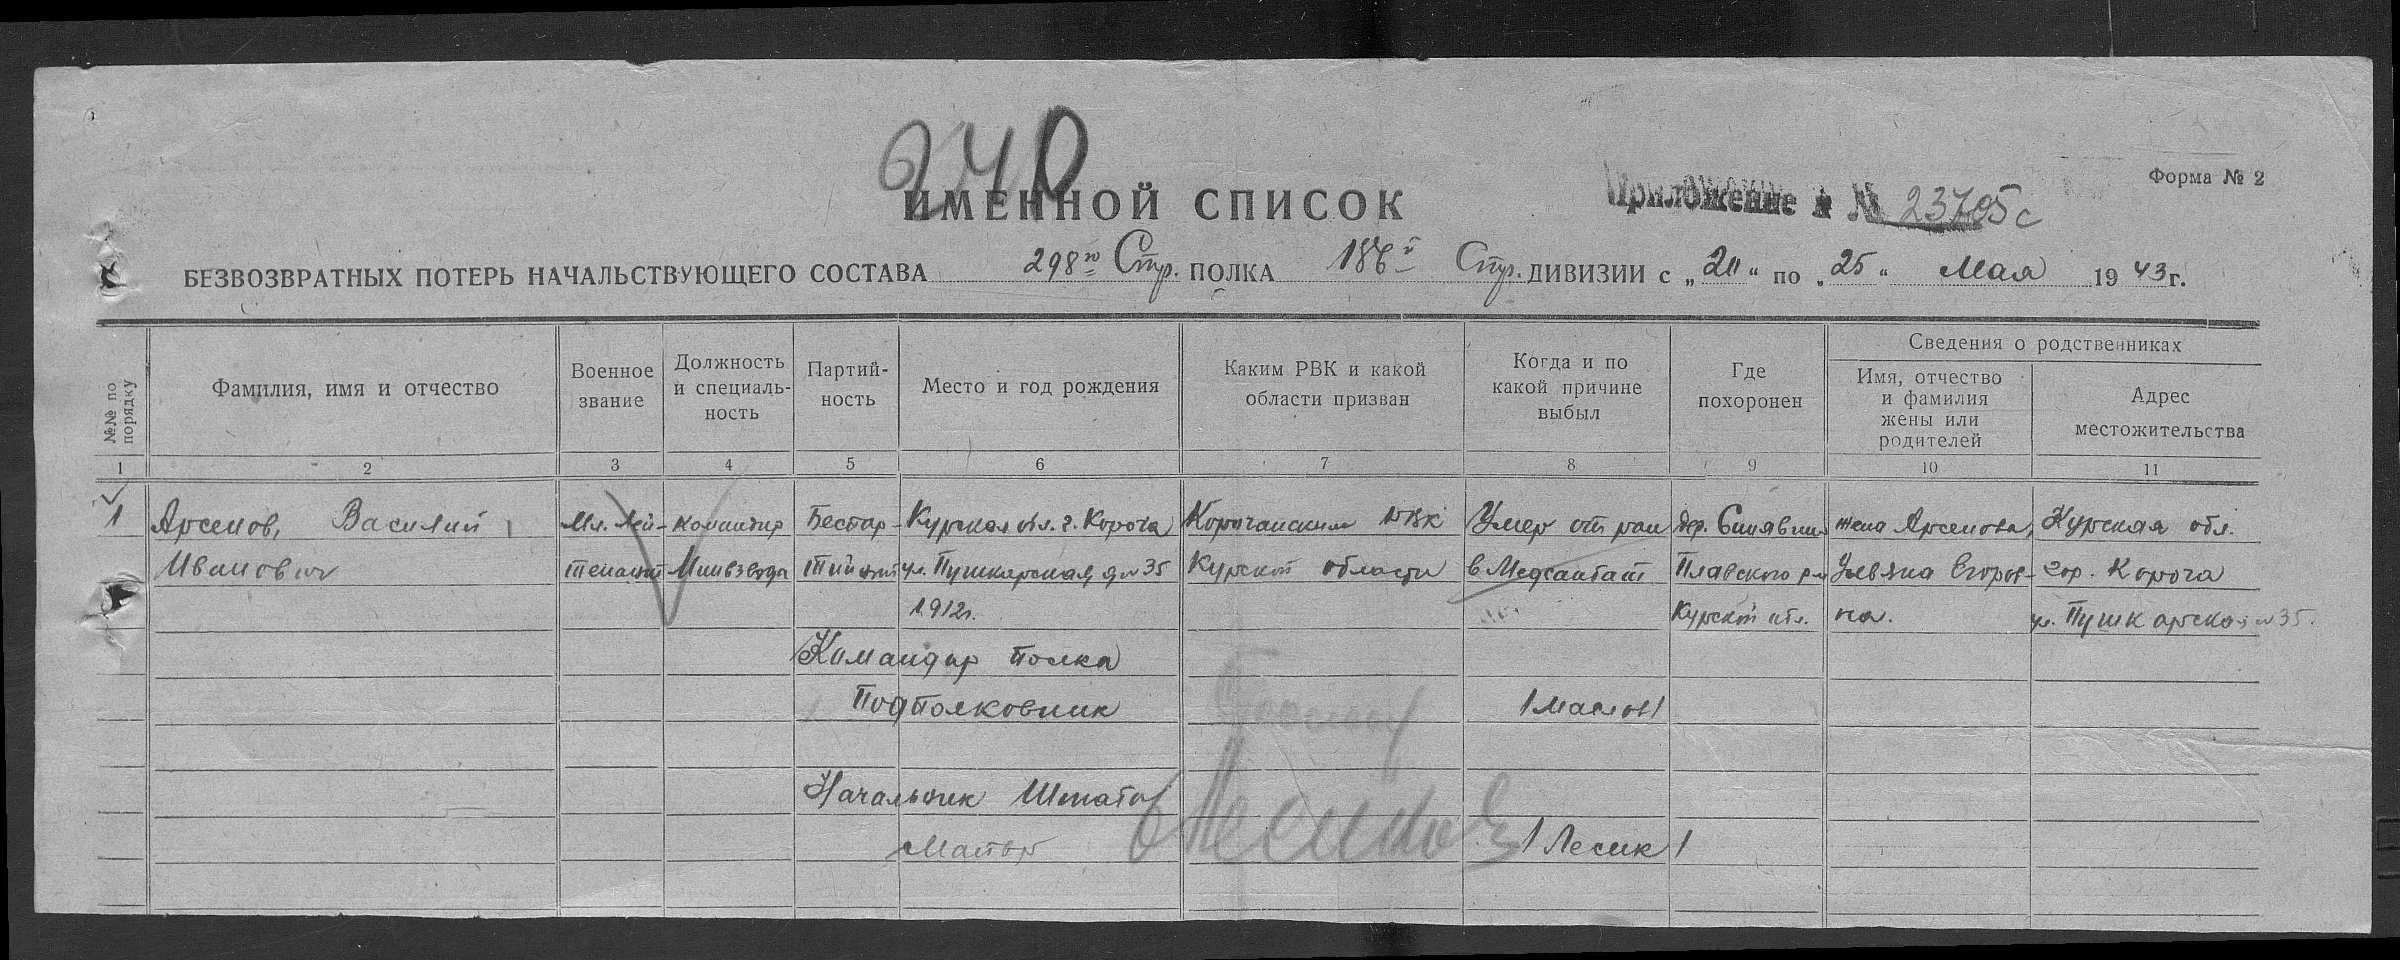 240
Форма № 2
ИМЕННОЙ СПИСОК
Приложение к № 23705с
БЕЗВОЗВРАТНЫХ ПОТЕРЬ НАЧАЛЬСТВУЮЩЕГО СОСТАВА 298го Стр. ПОЛКА 186й Стр. ДИВИЗИИ с „20“ по „25“ Мая 1943г.
№№ по порядку
Фамилия, имя и отчество
Военное звание
Должность и специаль-ность
Партий-ность
Место и год рождения
Каким РВК и какой области призван
Когда и по какой причине выбыл
Где похоронен
Сведения о родственниках
Имя, отчество и фамилия жены или родителей
Адрес местожительства
1 2 3 4 5 6 7 8 9 10 11
1 Арсенов, Василий Мл. Лей- командир Беспар- Курская обл. г. Короча Корочанским РВК Умер от ран дер. жена Арсенова, Курская обл.
Иванович тенант Минвзвода тийный ул. Пушкарская д № 35 Курской области в Медсанбат Плавского р-н Ульяна Егоров- гор. Короча
1912г. Курской обл. на. ул. Пушкарская № 35.
Командир полка
Подполковник /Маслов/
Начальник Штаба
Майор /Лесик/